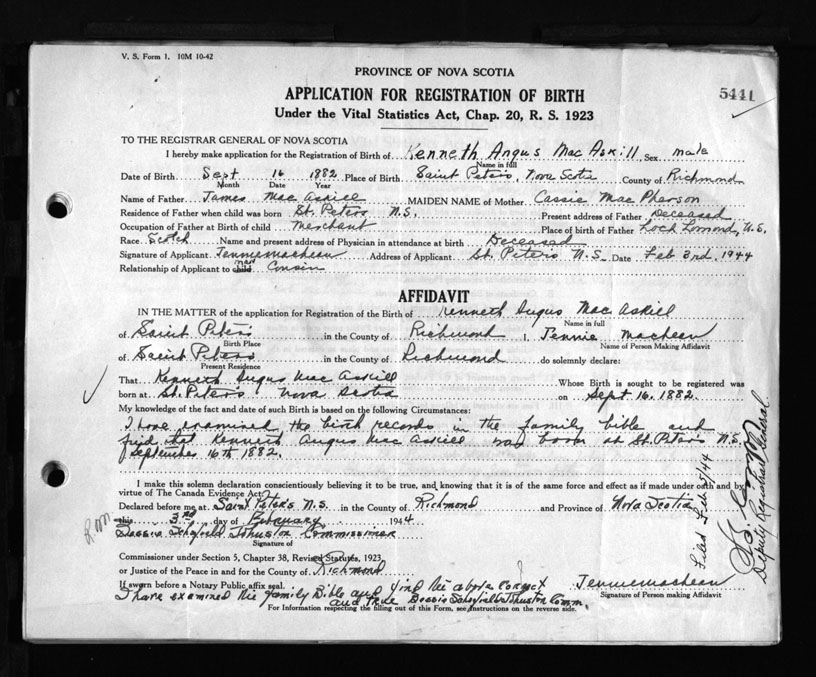 V. S. Form 1. 10M 10-42
PROVINCE OF NOVA SCOTIA
APPLICATION FOR REGISTRATION OF BIRTH
5441
Under the Vital Statistics Act, Chap. 20, R. S. 1923
TO THE REGISTRAR GENERAL OF NOVA SCOTIA
I hereby make application for the Registration of Birth of Kenneth Angus Mac Askill Sex male
Name in full
Date of Birth Sept 16 1882 Place of Birth Saint Peters, Nova Scotia County of Richmond
Month Date Year
Name of Father James Mac Askill MAIDEN NAME of Mother Cassie Mac Pherson
Residence of Father when child was born St. Peters N.S. Present address of Father Deceased
Occupation of Father at Birth of child Merchant Place of birth of Father Loch Lomond, N.S.
Race Scotch Name and present address of Physician in attendance at birth Deceased
Signature of Applicant Jennie MacLean Address of Applicant St. Peters N.S. Date Feb 3rd, 1944
Relationship of Applicant to child man Cousin
AFFIDAVIT
IN THE MATTER of the application for Registration of the Birth of Kenneth Angus Mac Askill
Name in full
of Saint Peters in the County of Richmond I, Jennie MacLean
Birth Place Name of Person Making Affidavit
of Saint Peters in the County of Richmond do solemnly declare:
Present Residence
That Kenneth Angus Mac Askill Whose Birth is sought to be registered was
born at St. Peter's Nova Scotia on Sept 16, 1882.
My knowledge of the fact and date of such Birth is based on the following Circumstances:
I have examined the birth records in the family bible and
find that Kenneth Angus Mac Askill was born at St. Peter's N.S.
September 16th 1882.
I make this solemn declaration conscientiously believing it to be true, and knowing that it is of the same force and effect as if made under oath and by
virtue of The Canada Evidence Act.
Declared before me at Saint Peter's N.S. in the County of Richmond and Province of Nova Scotia
this 3rd day of February 1944
Bessie Schofield Johnston Commissioner
Signature of
Commissioner under Section 5, Chapter 38, Revised Statutes, 1923,
or Justice of the Peace in and for the County of Richmond
If sworn before a Notary Public affix seal. Jennie MacLean
I have examined the family Bible and find the above correct
and true Bessie Schofield Johnston Comm.
Signature of Person making Affidavit
For Information respecting the filling out of this Form, see Instructions on the reverse side.
Filed Feb 5/44
Deputy Registrar General